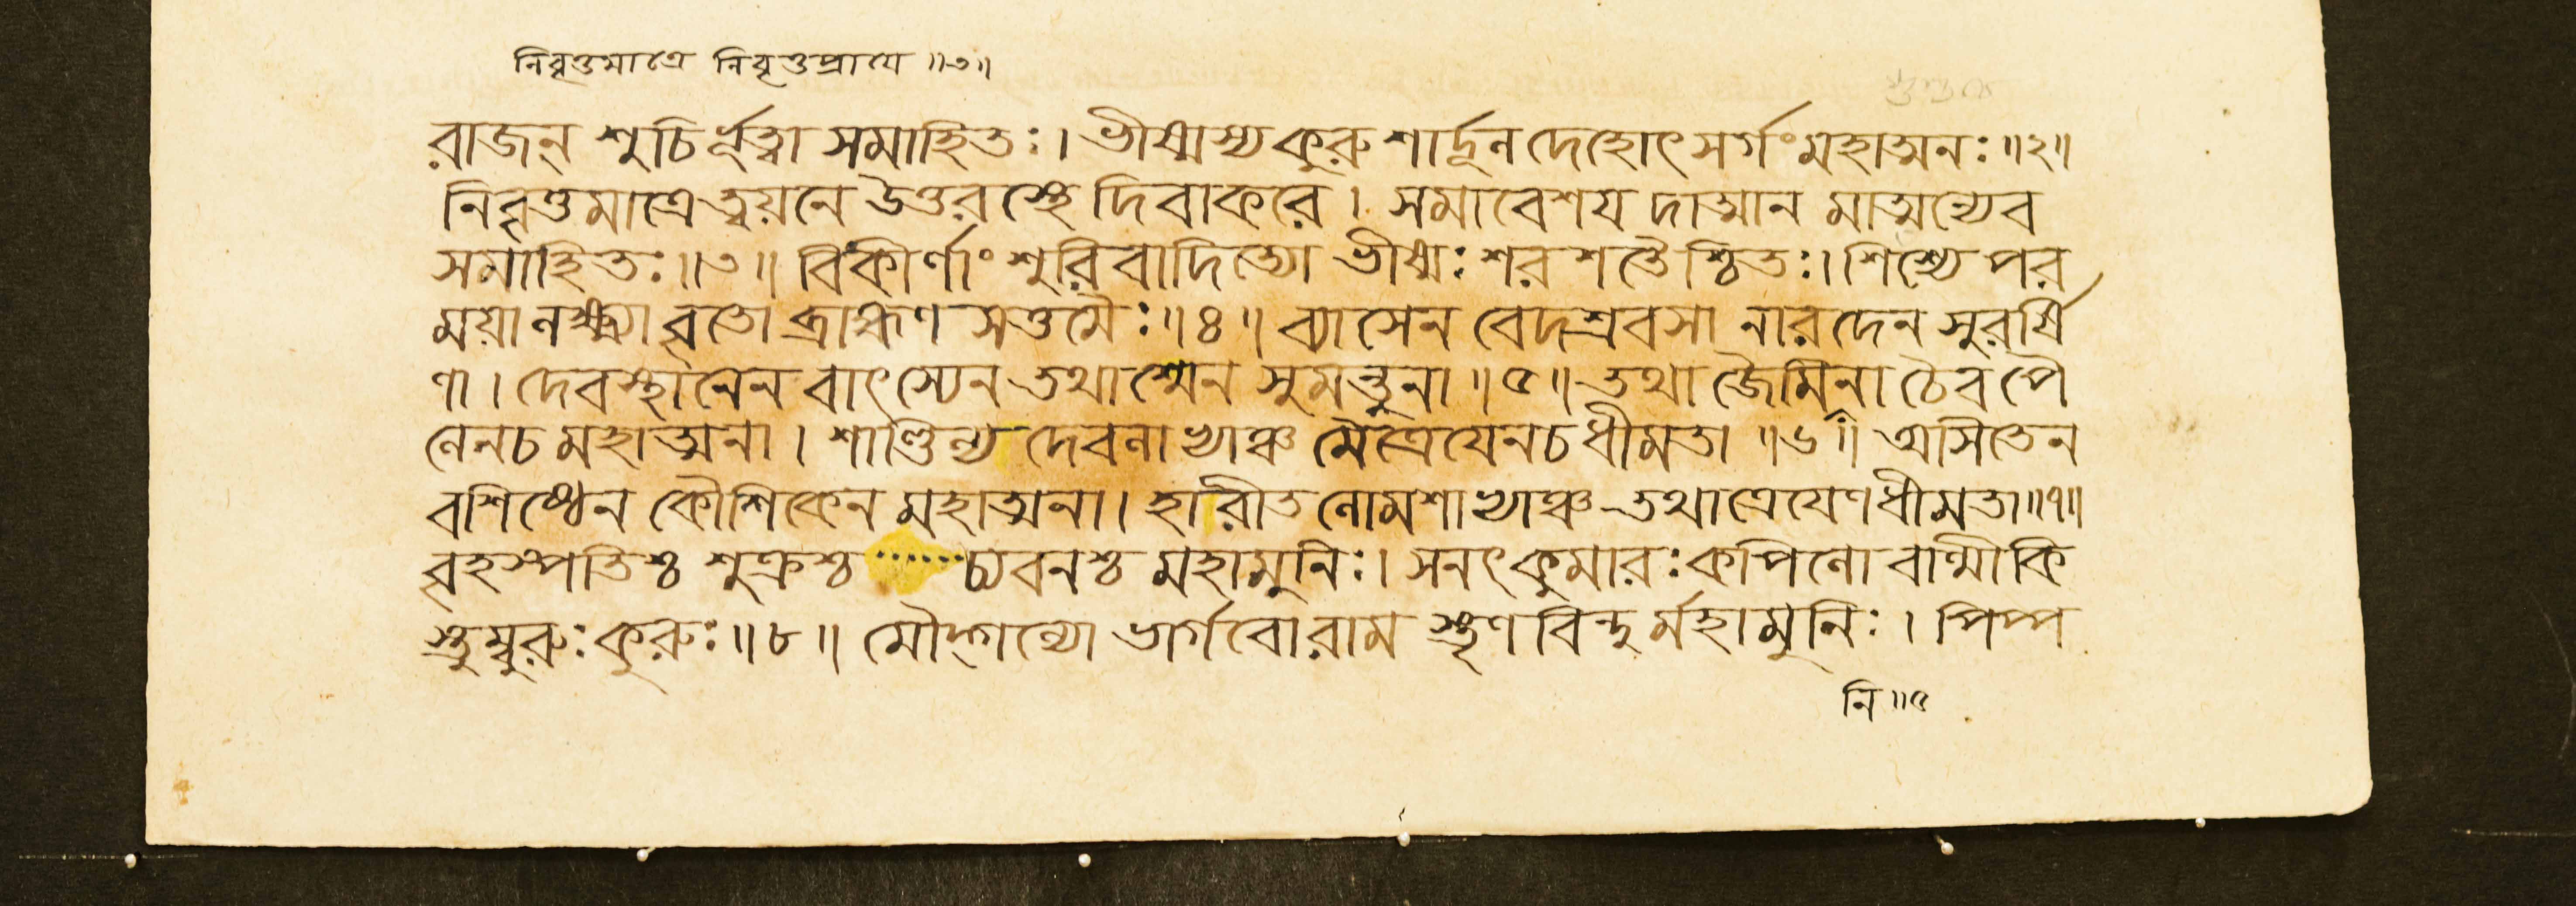 নিবৃত্তমাত্রে নিবৃত্তপ্রায়ে ॥৩॥
রাজন্ শুচির্ভূত্বা সমাহিতঃ। ভীষ্মস্য কুরুশার্দূল দেহোৎসর্গং মহাত্মনঃ॥২॥
নিবৃত্তমাত্রে ত্বয়নে উত্তরস্থে দিবাকরে। সমাবেশয দাত্মান মাত্মন্যেব
সমাহিতঃ॥৩॥ বিকীর্ণাংশুরিবাদিত্যো ভীষ্মঃ শরশতৈ শ্চিতঃ। শিশ্যে পর
ময়া লক্ষ্ম্যা বৃতো ব্রাহ্মণ সত্তমৈঃ॥৪॥ ব্যাসেন বেদশ্রবসা নারদেন সুরর্ষি
ণা। দেবস্থানেন বাৎস্যেন তথাশ্মেন সুমন্তুনা॥৫॥ তথা জৈমিনা চৈব পৈ
লেন চ মহাত্মনা। শাণ্ডিল্য দেবলাভ্যাঞ্চ মৈত্রেযেন চ ধীমতা॥৬॥ অসিতেন
বশিষ্ঠেন কৌশিকেন মহাত্মনা। হারীত লোমশাভ্যাঞ্চ তথাত্রেযেণ ধীমতা॥৭॥
বৃহস্পতিশ্চ শুক্রশ্চ ...... চ্যবনশ্চ মহামুনিঃ। সনৎকুমারঃ কপিলো বাল্মীকি
স্তুম্বুরুঃ কুরুঃ॥৮॥ মৌদ্গাল্যো ভার্গবো রাম স্তৃণবিন্দুর্মহামুনিঃ। পিপ্প
লি॥৫